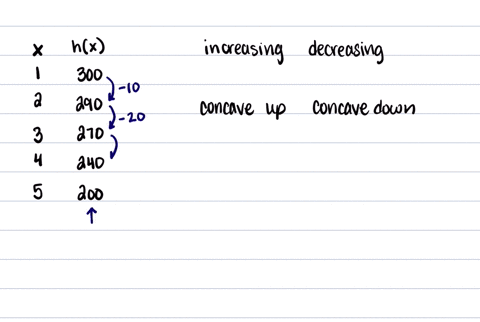 x h(x) increasing decreasing
1 300
-10
2 290 concave up concave down
-20
3 270
4 240
5 200